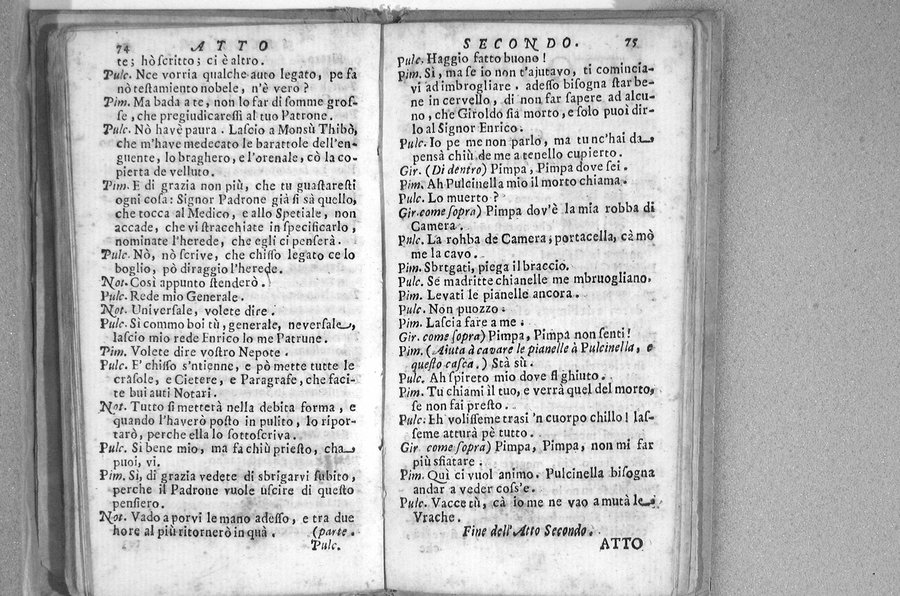 74 ATTO
te; hò scritto; ci è altro.
Pulc. Nce vorria qualche auto legato, pe fa
nò testamiento nobele, n'è vero?
Pim. Ma bada a te, non lo far di somme gros-
se, che pregiudicaressi al tuo Patrone.
Pulc. Nò havè paura. Lascio a Monsù Thibò,
che m'have medecato le barattole dell'en-
guente, lo braghero, e l'orenale, cò la co-
pierta de velluto.
Pim. E di grazia non più, che tu guastaresti
ogni cosa: Signor Padrone già si sà quello,
che tocca al Medico, e allo Spetiale, non
accade, che vi stracchiate in specificarlo,
nominate l'herede, che egli ci penserà.
Pulc. Nò, nò scrive, che chisso legato ce lo
boglio, pò diraggio l'herede.
Not. Così appunto stenderò.
Pulc. Rede mio Generale.
Not. Universale, volete dire.
Pulc. Sì commo boi tù, generale, neversale,
lascio mio rede Enrico lo me Patrune.
Pim. Volete dire vostro Nepote.
Pulc. E' chisso s'ntienne, e pò mette tutte le
crãsole, e Cietere, e Paragrafe, che faci-
te bui auti Notari.
Not. Tutto si metterà nella debita forma, e
quando l'haverò posto in pulito, lo ripor-
tarò, perche ella lo sottoscriva.
Pulc. Si bene mio, ma fa chiù priesto, cha
puoi, vi.
Pim. Sì, di grazia vedete di sbrigarvi subito,
perche il Padrone vuole uscire di questo
pensiero.
Not. Vado a porvi le mano adesso, e tra due
hore al più ritornerò in quà. (parte.
Pulc.
SECONDO. 75
Pulc. Haggio fatto buono!
Pim. Sì, ma se io non t'ajutavo, ti comincia-
vi ad imbrogliare. adesso bisogna star be-
ne in cervello, di non far sapere ad alcu-
no, che Giroldo sia morto, e solo puoi dir-
lo al Signor Enrico.
Pulc. Io pe me non parlo, ma tu nc'hai da
pensà chiù de me a tenello cupierto.
Gir. (Di dentro) Pimpa, Pimpa dove sei.
Pim. Ah Pulcinella mio il morto chiama.
Pulc. Lo muerto?
Gir. come sopra) Pimpa dov'è la mia robba di
Camera.
Pulc. La rohba de Camera, portacella, cà mò
me la cavo.
Pim. Sbrtgati, piega il braccio.
Pulc. Se madritte chianelle me mbruogliano.
Pim. Levati le pianelle ancora.
Pulc. Non puozzo.
Pim. Lascia fare a me.
Gir. come sopra) Pimpa, Pimpa non senti!
Pim. (Aiuta à cavare le pianelle à Pulcinella, e
questo casca.) Stà sù.
Pulc. Ah spireto mio dove si ghiuto.
Pim. Tu chiami il tuo, e verrà quel del morto,
se non fai presto.
Pulc. Eh volisseme trasi 'n cuorpo chillo! las-
seme atturà pè tutto.
Gir come sopra) Pimpa, Pimpa, non mi far
più sfiatare.
Pim. Quì ci vuol animo. Pulcinella bisogna
andar a veder cos'e.
Pulc. Vacce tù, cà io me ne vao a mutà le
Vrache.
Fine dell'Atto Secondo.
ATTO